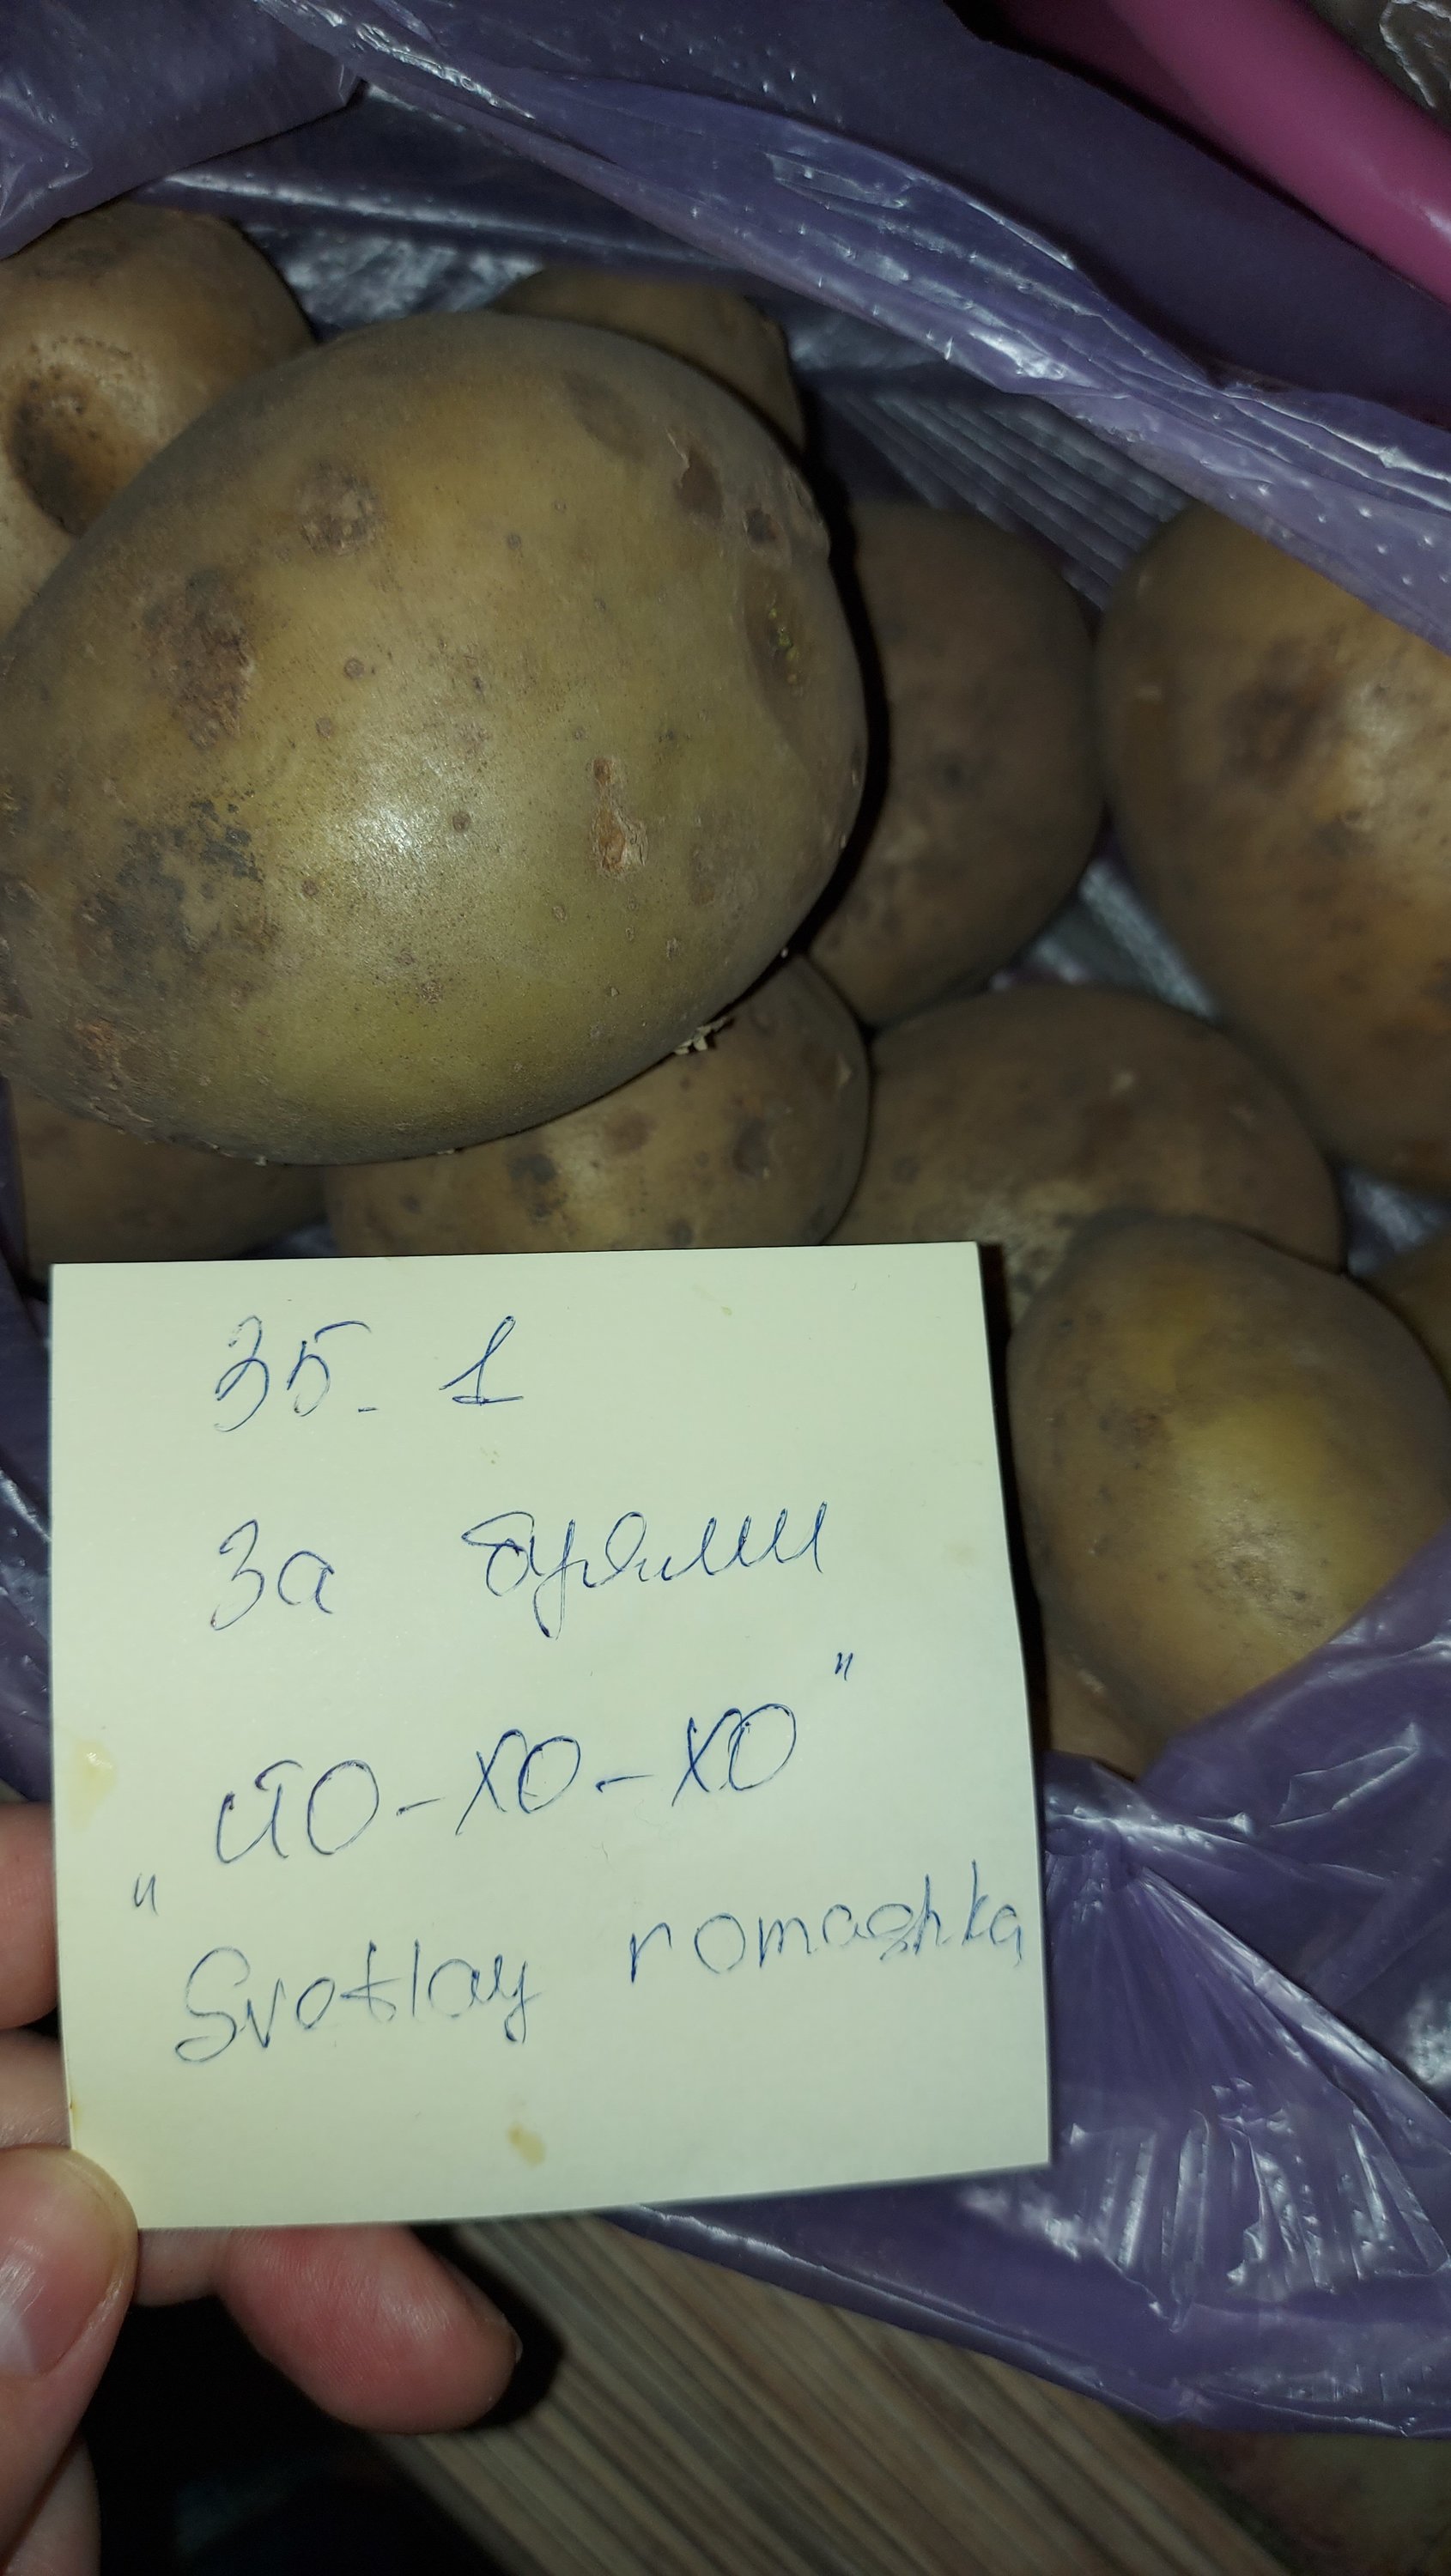 35-1
За буями
"ЙО-ХО-ХО"
Svetlay romashka